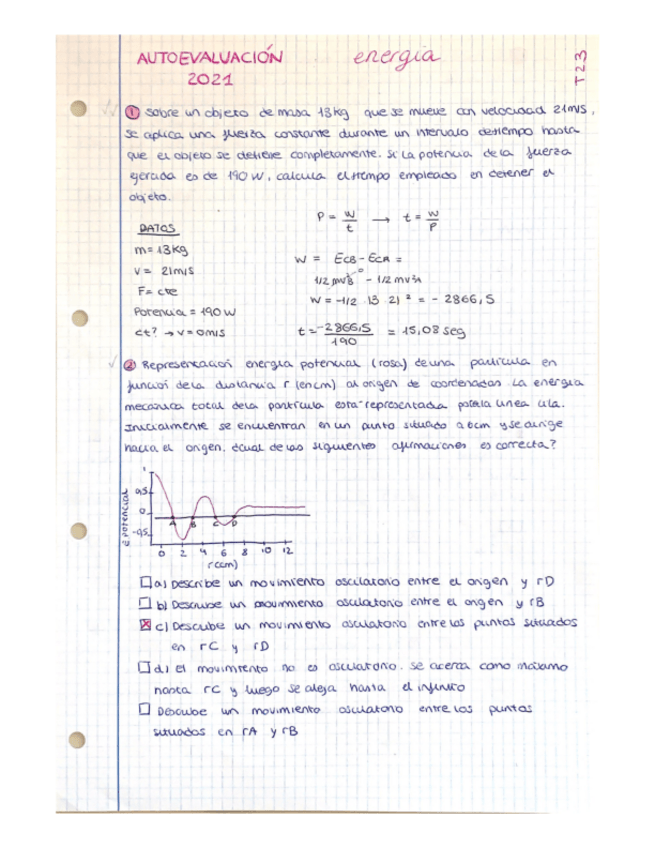 AUTOEVALUACIÓN energía
2021
T23
① Sobre un objeto de masa 13kg que se mueve con velocidad 21m/s,
se aplica una fuerza constante durante un intervalo de tiempo hasta
que el objeto se detiene completamente. Si la potencia de la fuerza
gerada es de 190 W, calcula el tiempo empleado en detener el
objeto.
P = W/t → t = W/P
DATOS
m = 13kg
W = ECB - ECA =
V = 21m/s
1/2 mv²B⁰ - 1/2 mv²A
F = cte
W = -1/2 13 21² = - 2866,5
Potencia = 190 W
ct? → v = 0m/s
t = -2866,5/190 = 15,08 seg
② Representación energía potencial (rosa) de una partícula en
función de la distancia r (en cm) al origen de coordenadas. La energía
mecánica total de la partícula esta representada por la linea lila.
Inicialmente se encuentran en un punto situado a 6cm y se dirige
hacia el origen. ¿Cual de las siguientes afirmaciones es correcta?
E potencial
1
0,5
0
-0,5
A B C D
0 2 4 6 8 10 12
r (cm)
a) Describe un movimiento oscilatorio entre el origen y rD
b) Describe un movimiento oscilatorio entre el origen y rB
x c) Describe un movimiento oscilatorio entre los puntos situados
en rC y rD
d) El movimiento no es oscilatorio. Se acerca como máximo
hasta rC y luego se aleja hasta el infinito
Describe un movimiento oscilatorio entre los puntos
situados en rA y rB